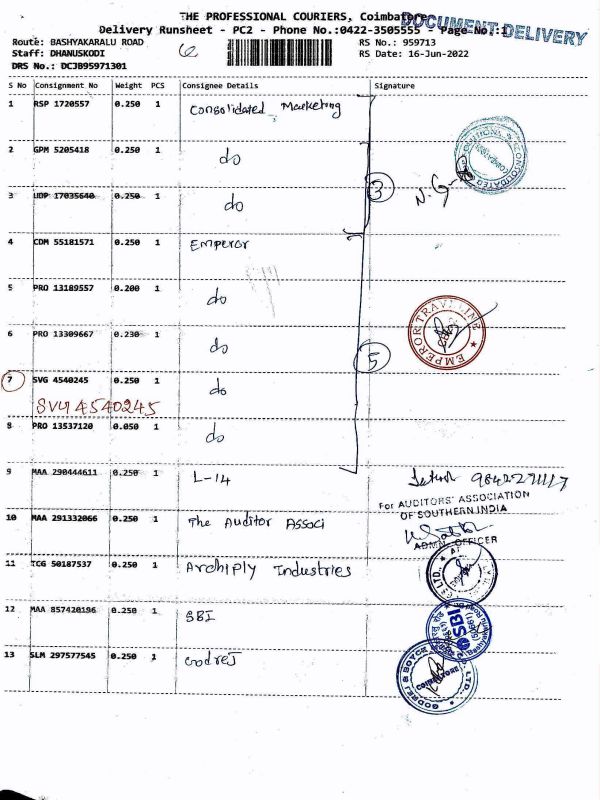 THE PROFESSIONAL COURIERS, Coimbatore
DOCUMENT DELIVERY
Delivery Runsheet - PC2 - Phone No.:0422-3505555 - Page No.:1
Route: BASHYAKARALU ROAD
RS No.: 959713
Staff: DHANUSKODI
RS Date: 16-Jun-2022
DRS No.: DCJB95971301
S No Consignment No Weight PCS Consignee Details Signature
1 RSP 1720557 0.250 1 Consolidated Marketing
2 GPM 5205418 0.250 1 do
3 UDP 17035640 0.250 1 do
3
4 CDM 55181571 0.250 1 Emperor
5 PRO 13189557 0.200 1 do
EMPEROR TRAVELINE
6 PRO 13309667 0.230 1 do
5
7 SVG 4540245 0.250 1 do
SVG 4540245
8 PRO 13537120 0.050 1 do
9 MAA 290444611 0.250 1 L-14
For AUDITORS' ASSOCIATION
OF SOUTHERN INDIA
10 MAA 291332066 0.250 1 The Auditor Associ
ADMN. OFFICER
11 TCG 50187537 0.250 1 Archiply Industries
12 MAA 857420196 0.250 1 SBI
SBI
13 SLM 297577545 0.250 1 Godrej
GODREJ & BOYCE
COIMBATORE